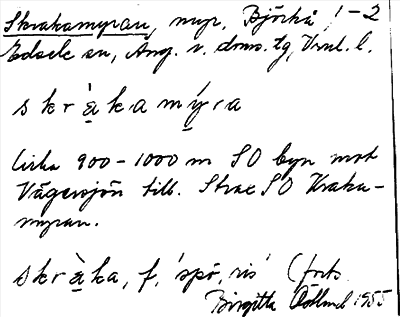 Skrakamyran, myr, Björkå, 1-2
Edsele sn, Ång. v. doms. tg, Vnl. l.
skràkamýra
Cirka 900-1000 m SO byn mot
Vägersjön till. Strax SO Kraka-
myran.
skràka, f, 'spö, ris' (forts.
Birgitta 1955